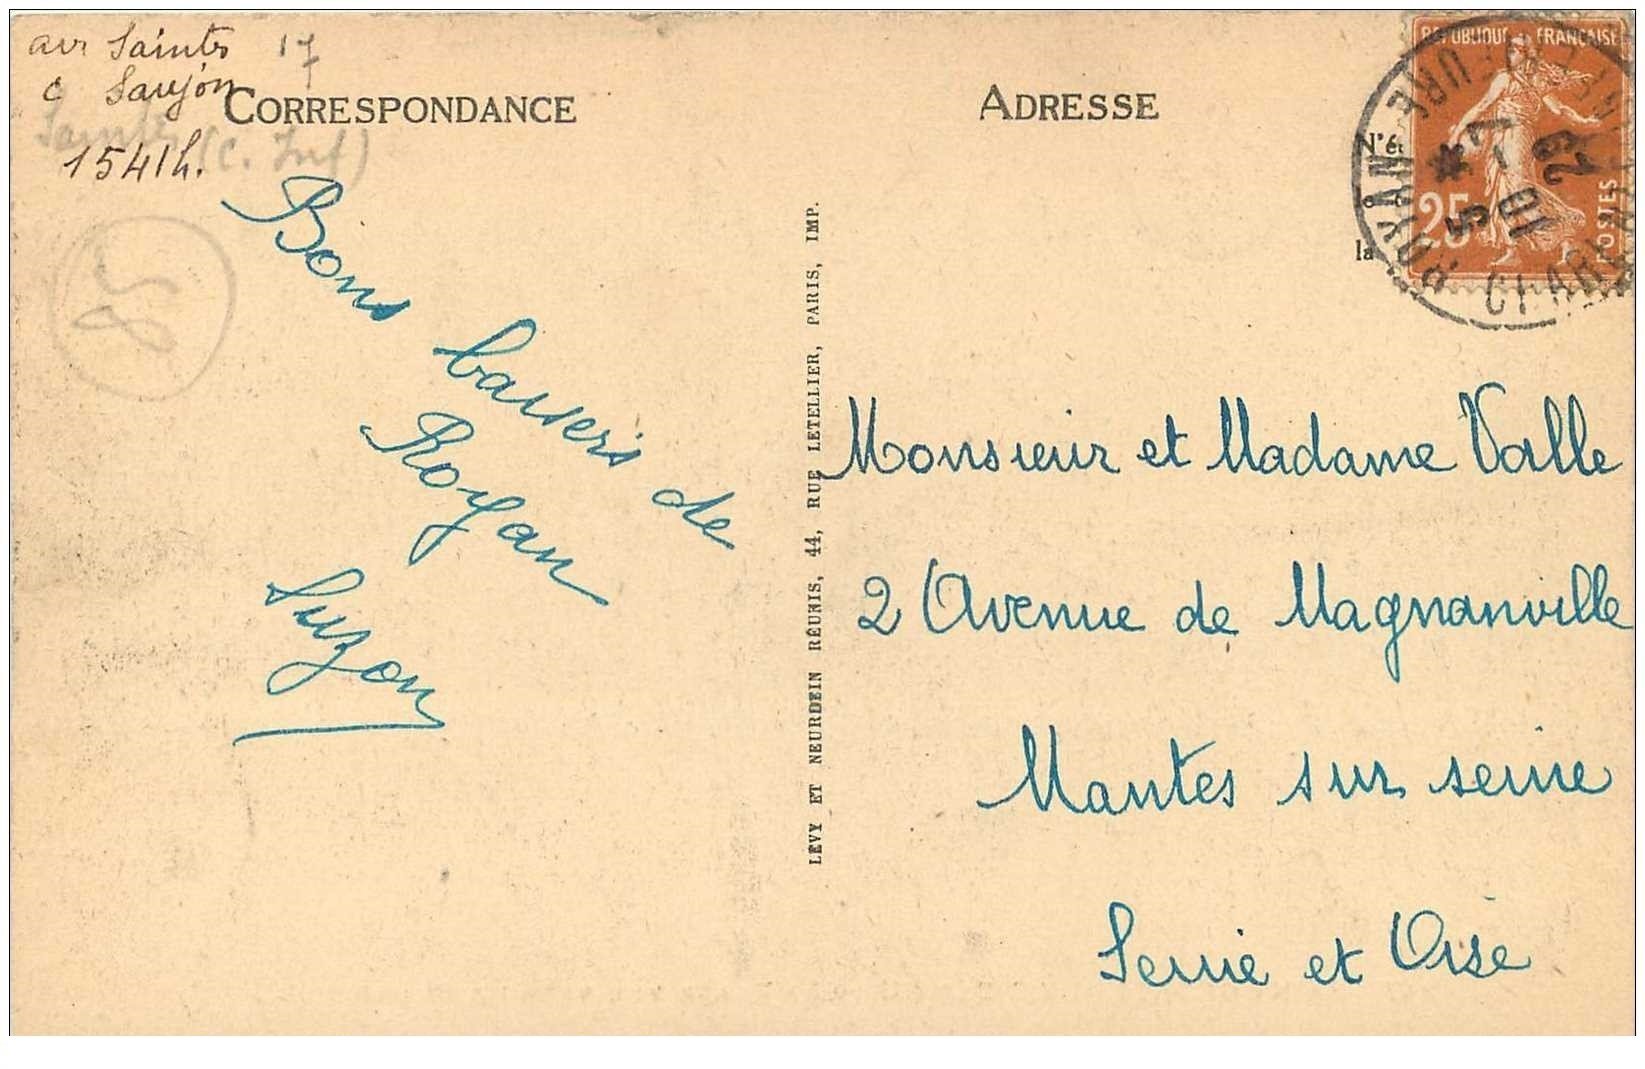 arr Saintes 17
c Saujon
Saintes (C. Inf)
1541h.
CORRESPONDANCE
ADRESSE
REPUBLIQUE FRANÇAISE
25
POSTES
ROYAN
N'é
la
Bons baisers de
Royan
Suzon
LÉVY ET NEURDEIN RÉUNIS, 44, RUE LETELLIER, PARIS, IMP.
Monsieur et Madame Valle
2 Avenue de Magnanville
Mantes sur seine
Seine et Oise